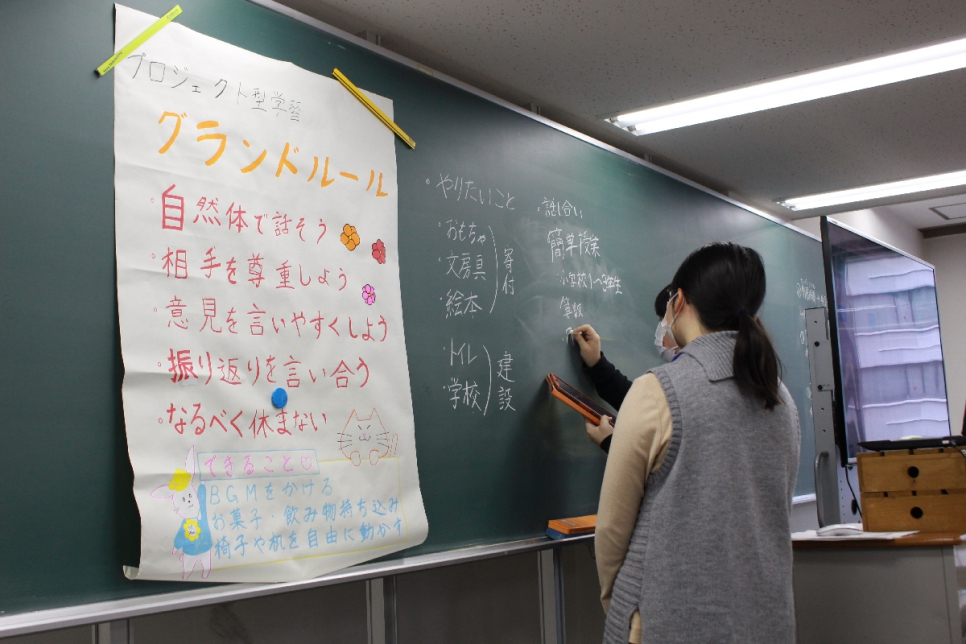 プロジェクト型学習
グランドルール
自然体で話そう
相手を尊重しよう
意見を言いやすくしよう
振り返りを言い合う
なるべく休まない
できること
BGMをかける
お菓子・飲み物持ち込み
椅子や机を自由に動かす
・やりたいこと
・おもちゃ
・文房具
・絵本
寄付
・トイレ
・学校
建設
・話し合い
簡単授業
算数